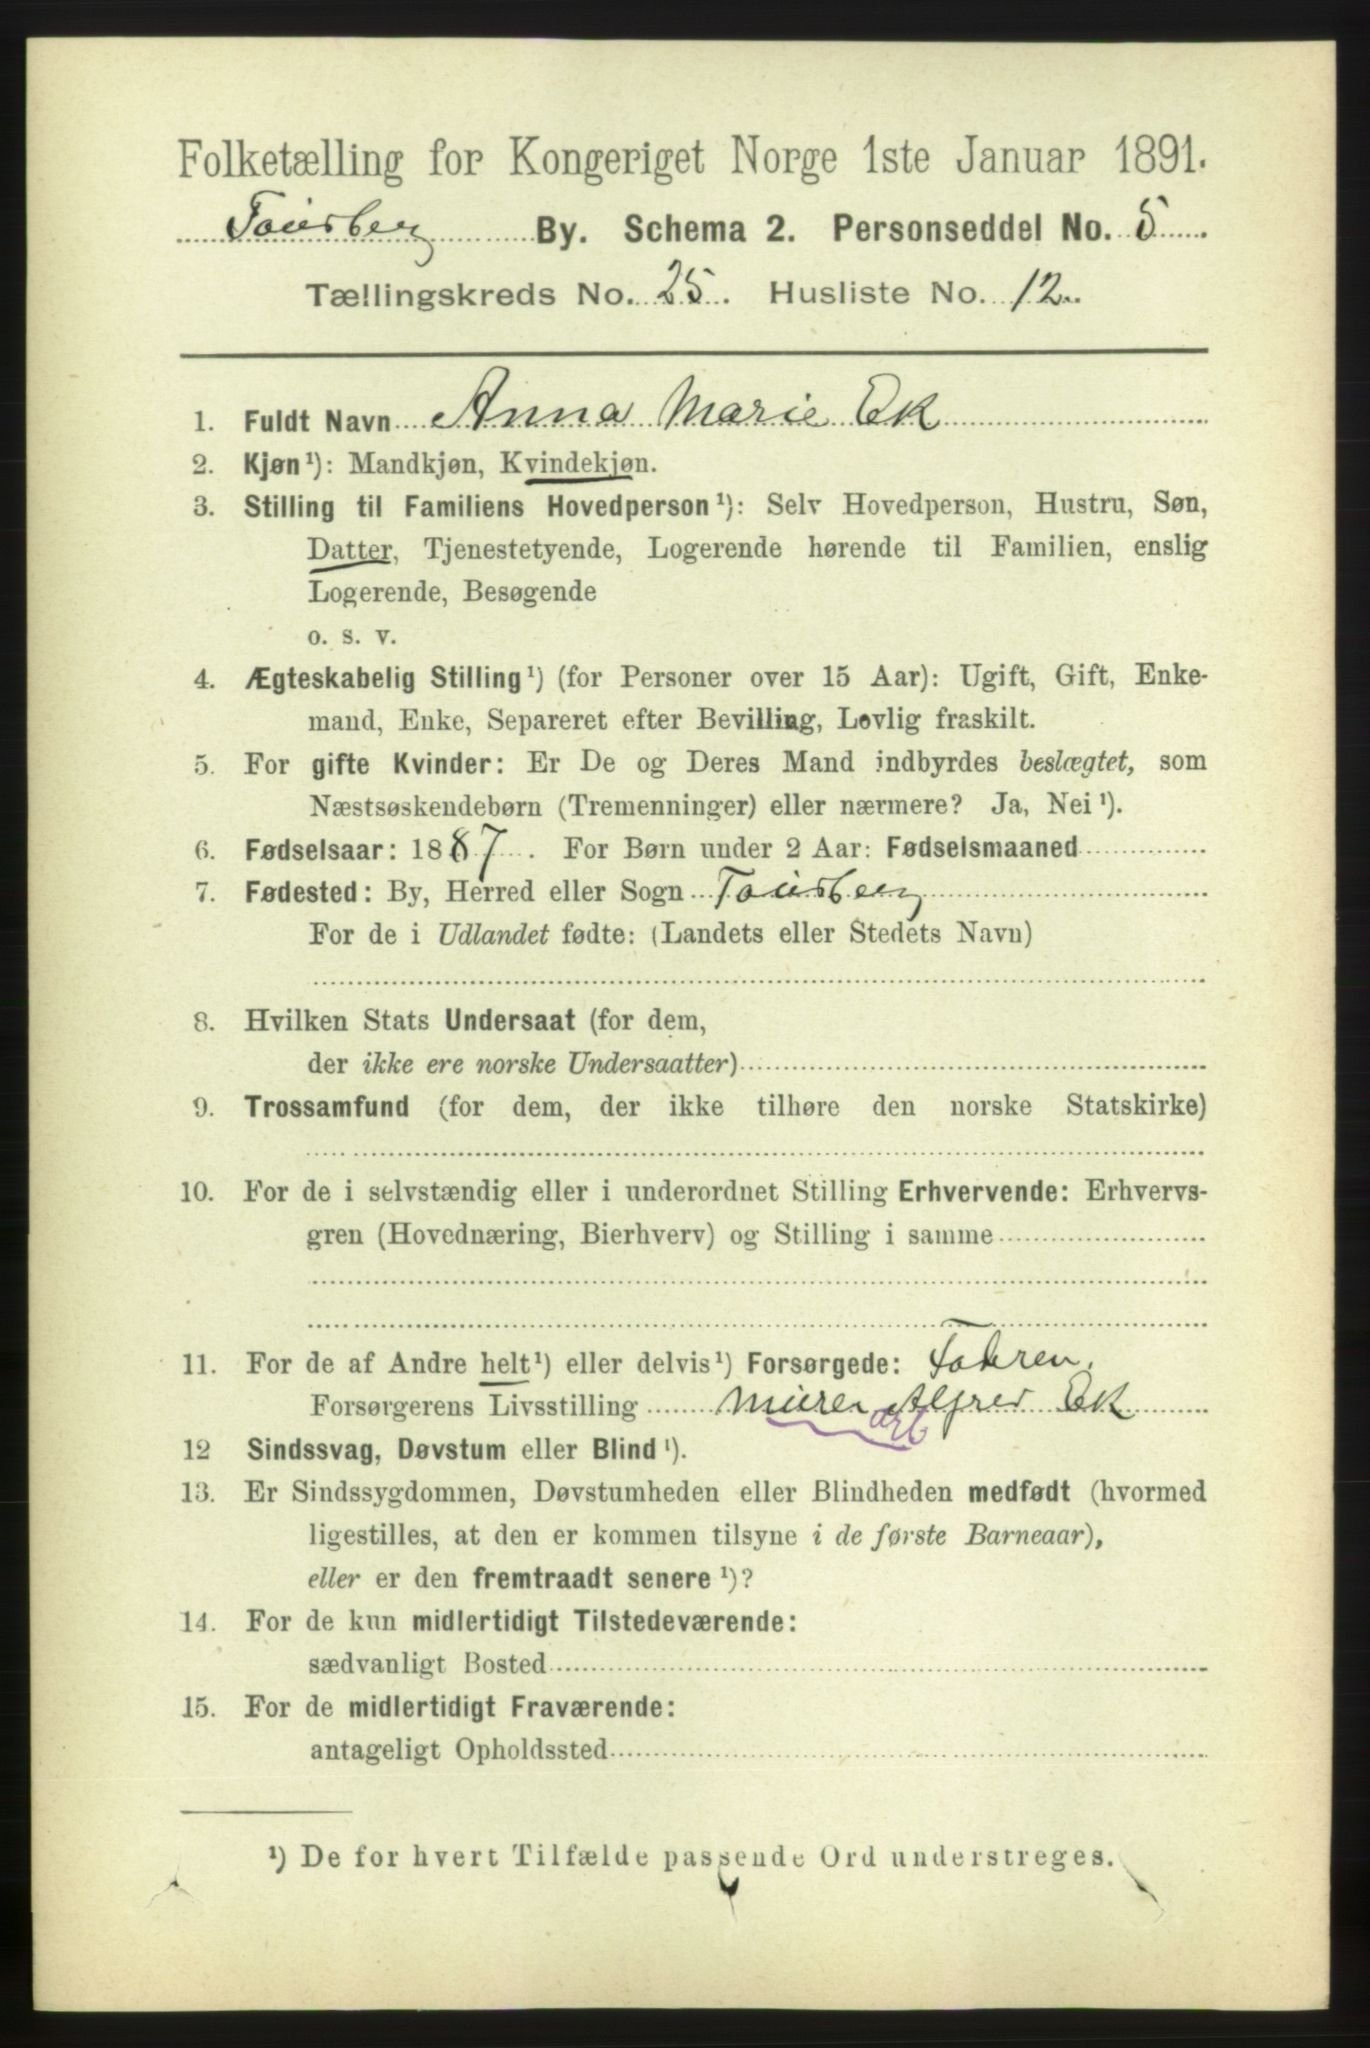 Folketælling for Kongeriget Norge 1ste Januar 1891.
Tønsberg By. Schema 2. Personseddel No. 5
Tællingskreds No. 25. Husliste No. 12.
1. Fuldt Navn Anna Marie Ek
2. Kjøn ¹): Mandkjøn, Kvindekjøn.
3. Stilling til Familiens Hovedperson ¹): Selv Hovedperson, Hustru, Søn,
Datter, Tjenestetyende, Logerende hørende til Familien, enslig
Logerende, Besøgende
o. s. v.
4. Ægteskabelig Stilling ¹) (for Personer over 15 Aar): Ugift, Gift, Enke-
mand, Enke, Separeret efter Bevilling, Lovlig fraskilt.
5. For gifte Kvinder: Er De og Deres Mand indbyrdes beslægtet, som
Næstsøskendebørn (Tremenninger) eller nærmere? Ja, Nei ¹).
6. Fødselsaar: 1887. For Børn under 2 Aar: Fødselsmaaned
7. Fødested: By, Herred eller Sogn Tønsberg
For de i Udlandet fødte: (Landets eller Stedets Navn)
8. Hvilken Stats Undersaat (for dem,
der ikke ere norske Undersaatter)
9. Trossamfund (for dem, der ikke tilhøre den norske Statskirke)
10. For de i selvstændig eller i underordnet Stilling Erhvervende: Erhvervs-
gren (Hovednæring, Bierhverv) og Stilling i samme
11. For de af Andre helt ¹) eller delvis ¹) Forsørgede: Faderen,
Forsørgerens Livsstilling Murer Alfred Ek
arb
12 Sindssvag, Døvstum eller Blind ¹).
13. Er Sindssygdommen, Døvstumheden eller Blindheden medfødt (hvormed
ligestilles, at den er kommen tilsyne i de første Barneaar),
eller er den fremtraadt senere ¹)?
14. For de kun midlertidigt Tilstedeværende:
sædvanligt Bosted
15. For de midlertidigt Fraværende:
antageligt Opholdssted
¹) De for hvert Tilfælde passende Ord understreges.